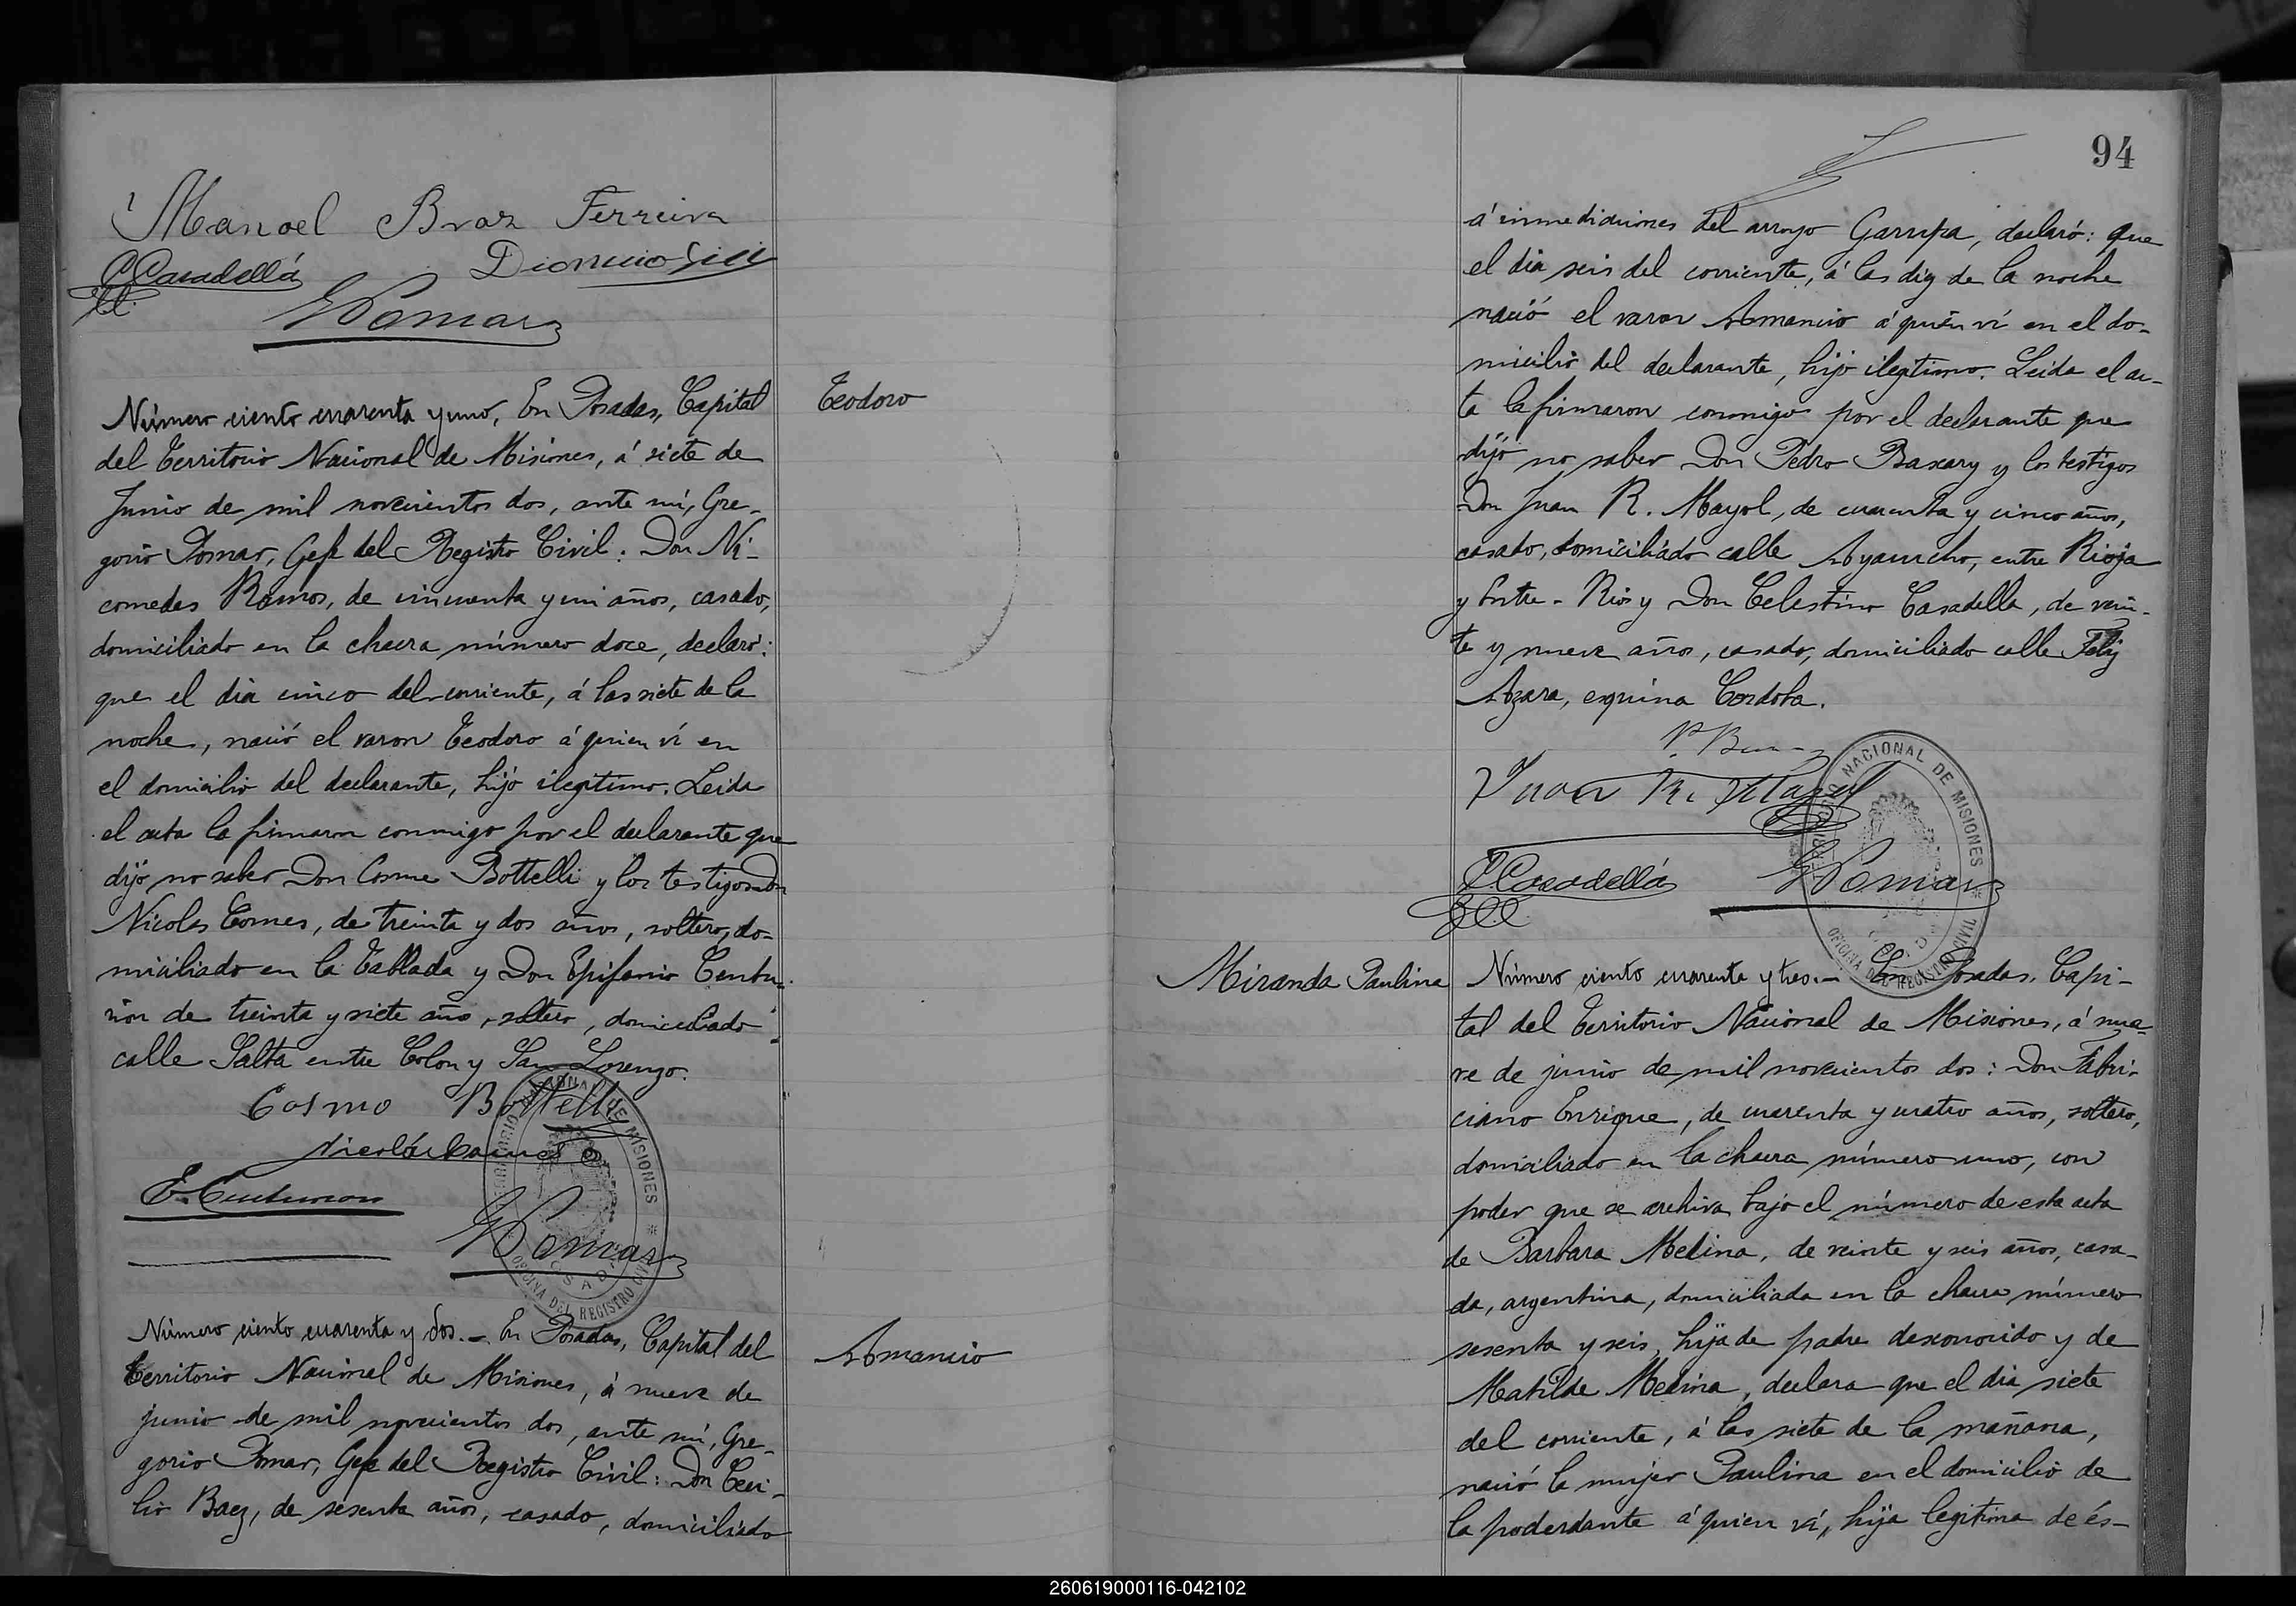 Manoel Braz Ferreira
Dionicio
C Casadellá
GPomar
Teodoro
Número ciento cuarenta y uno, En Posadas, Capital
del Territorio Nacional de Misiones, á siete de
Junio de mil novecientos dos, ante mí, Gre-
gorio Pomar, Gefe del Registro Civil: Don Ni-
comedes Ramos, de cincuenta y un años, casado,
domiciliado en la chacra número doce, declaró:
que el dia cinco del corriente, á las siete de la
noche, nació el varon Teodoro á quien ví en
el domicilio del declarante, hijo ilegitimo. Leida
el acta la firmaron conmigo por el declarante que
dijo no saber Don Cosme Bottelli y los testigos Don
Nicolas Comes, de treinta y dos años, soltero, do-
miciliado en la Tablada y Don Epifanio Centu-
rión de treinta y siete años, soltero, domiciliado
calle Salta entre Colon y San Lorenzo.
Cosmo Bottelli
Nicolás
E. Centurion
GPomar
TERRITORIO NACIONAL DE MISIONES
OFICINA DEL REGISTRO CIVIL
POSADAS
Amancio
Número ciento cuarenta y dos.- En Posadas, Capital del
Territorio Nacional de Misiones, á nueve de
junio de mil novecientos dos, ante mí, Gre-
gorio Pomar, Gefe del Registro Civil: Don Ceci-
lio Baez, de sesenta años, casado, domiciliado
94
á inmediciones del arroyo Garupa, declaró: que
el dia seis del corriente, á las diez de la noche
nació el varon Amancio á quien ví en el do-
micilio del declarante, hijo ilegitimo. Leida el ac-
ta la firmaron conmigo por el declarante que
dijo no saber Don Pedro y los testigos
Don Juan R. Mayol, de cuarenta y cinco años,
casado, domiciliado calle Ayacucho, entre Rioja
y Entre-Rios y Don Celestino Casadella, de vein-
te y nueve años, casado, domiciliado calle Feliz
Azara, esquina Cordoba.
Juan R. Mayol
C Casadellá
GPomar
TERRITORIO NACIONAL DE MISIONES
OFICINA DEL REGISTRO CIVIL
Miranda Paulina
Número ciento cuarenta y tres.- En Posadas, Capi-
tal del Territorio Nacional de Misiones, á nue-
ve de junio de mil novecientos dos: Don Fabri-
ciano Enrique, de cuarenta y cuatro años, soltero,
domiciliado en la chacra número uno, con
poder que se archiva bajo el número de esta acta
de Barbara Medina, de veinte y seis años, casa-
da, argentina, domiciliada en la chacra número
sesenta y seis, hija de padre desconocido y de
Matilde Medina, declara que el dia siete
del corriente, á las siete de la mañana,
nació la mujer Paulina en el domicilio de
la poderdante á quien ví, hija legitima de és-
260619000116-042102